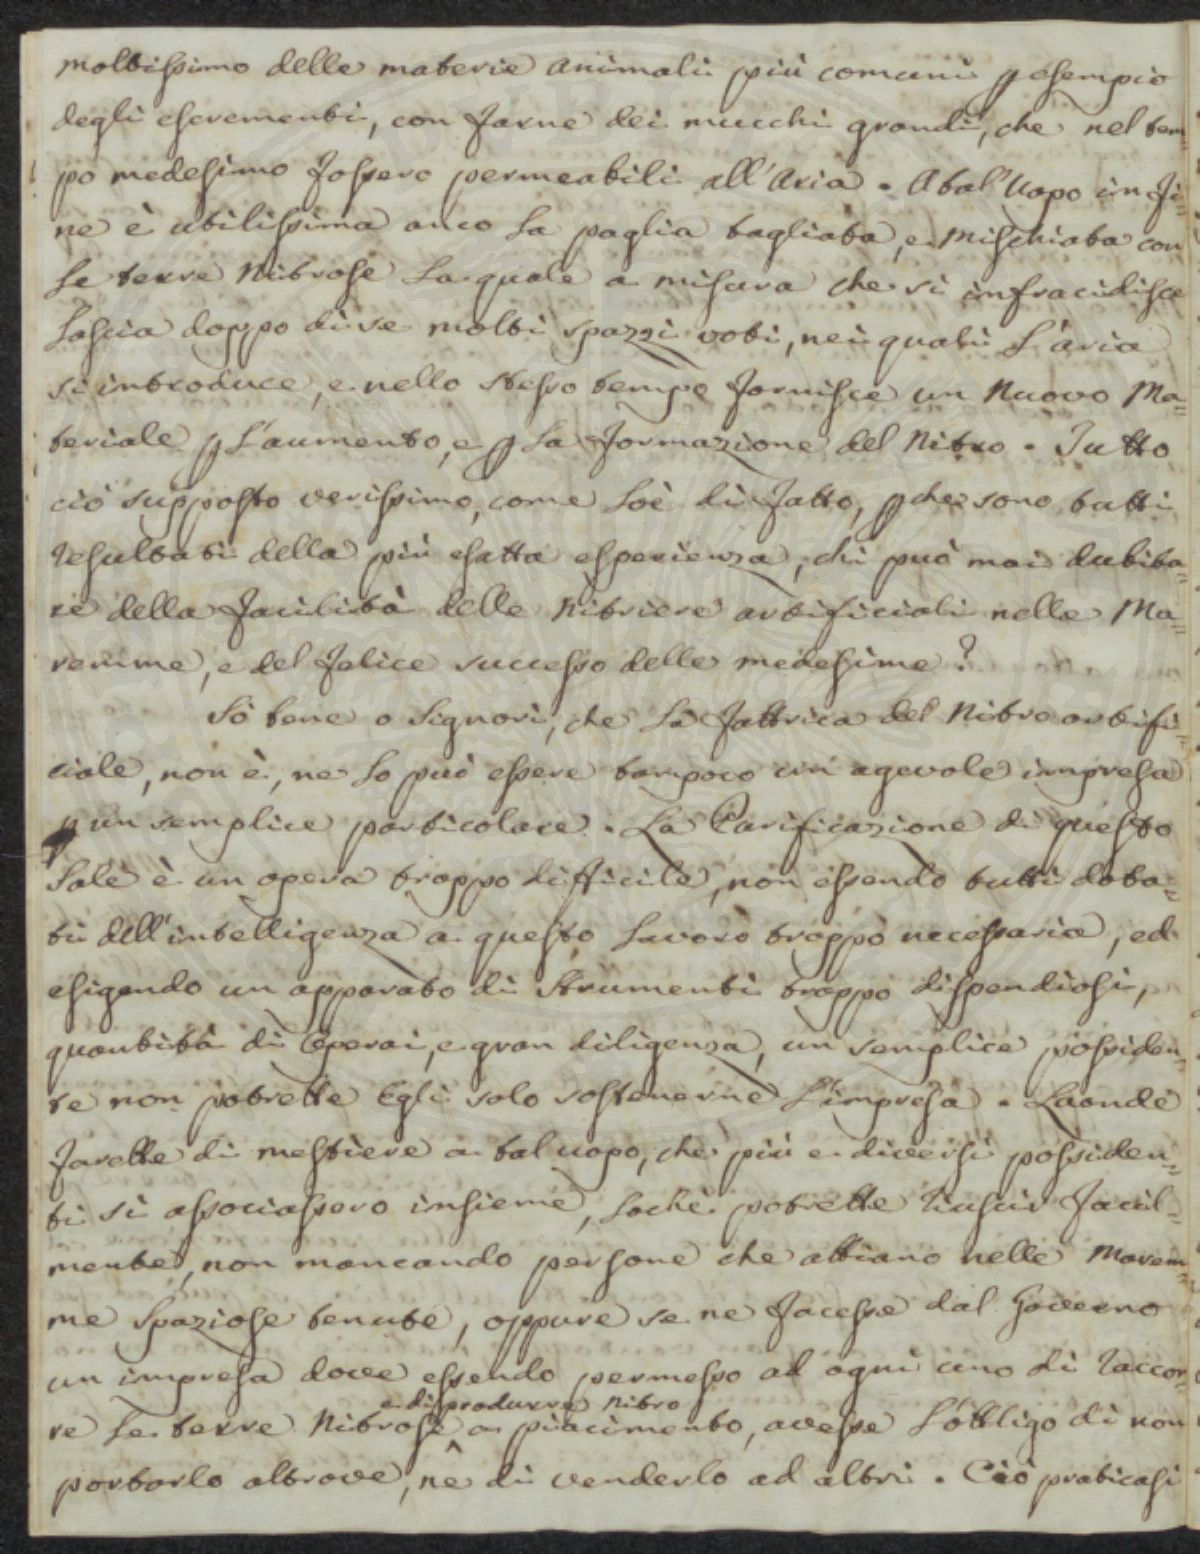 moltissimo delle materie animali più comuni ꝑ esempio
degli escrementi, con farne dei mucchi grandi, che nel tem-
po medesimo fossero permeabili all'Aria. A tal'Uopo in fi=
ne è utilissima anco la paglia tagliata, e mischiata con
le terre Nitrose la quale a misura che si infracidisce
Lascia doppo di se molti spazzi voti, nei quali L'aria
si introduce, e nello stesso tempo fornisce un Nuovo Ma=
teriale ꝑ L'aumento, e ꝑ La formazione del Nitro. Tutto
ciò supposto verissimo, come Lo è di fatto, ꝑche sono tutti
resultati della più esatta esperienza, chi può mai dubita=
re della facilità delle Nitriere artificiali nelle Ma=
remme, e del felice successo delle medesime?
Sò bene o Signori, che La fabbrica del Nitro artifi=
ciale, non è, ne Lo può essere tampoco un agevole impresa
ꝑ un semplice particolare. La Purificazione di questo
Sale è un opera troppo difficile, non essendo tutti dota=
ti dell'intelligenza a questo Lavoro troppo necessaria, ed
esigendo un apparato di Strumenti troppo dispendiosi,
quantità di Operai, e gran diligenza, un semplice possiden=
te non potrebbe Egli solo sostenerne L'impresa. Laonde
farebbe di mestiere a tal uopo, che più e diversi possiden=
ti si associassero insieme, Lochè potrebbe riuscir facil=
mente, non mancando persone che abbiano nelle Marem=
me Spaziose tenute, oppure se ne facesse dal Governo
un impresa dove essendo permesso ad ogni uno di raccor=
e di produrre Nitro
re Le terre Nitrose a piacimento, avesse L'obbligo di non
portarlo altrove, nè di venderlo ad altri. Ciò praticasi